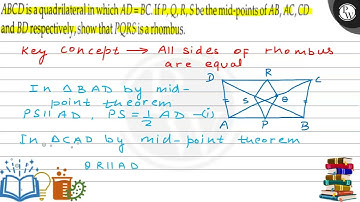 ABCD is a quadrilateral in which AD = BC. If P, Q, R, S be the mid-points of AB, AC, CD
and BD respectively, show that PQRS is a rhombus.
Key concept → All sides of rhombus
are equal
In △BAD by mid-
point theorem
PS∥AD, PS=1/2 AD —(i)
In △CAD by mid-point theorem
QR∥AD
D R C
S Q
A P B